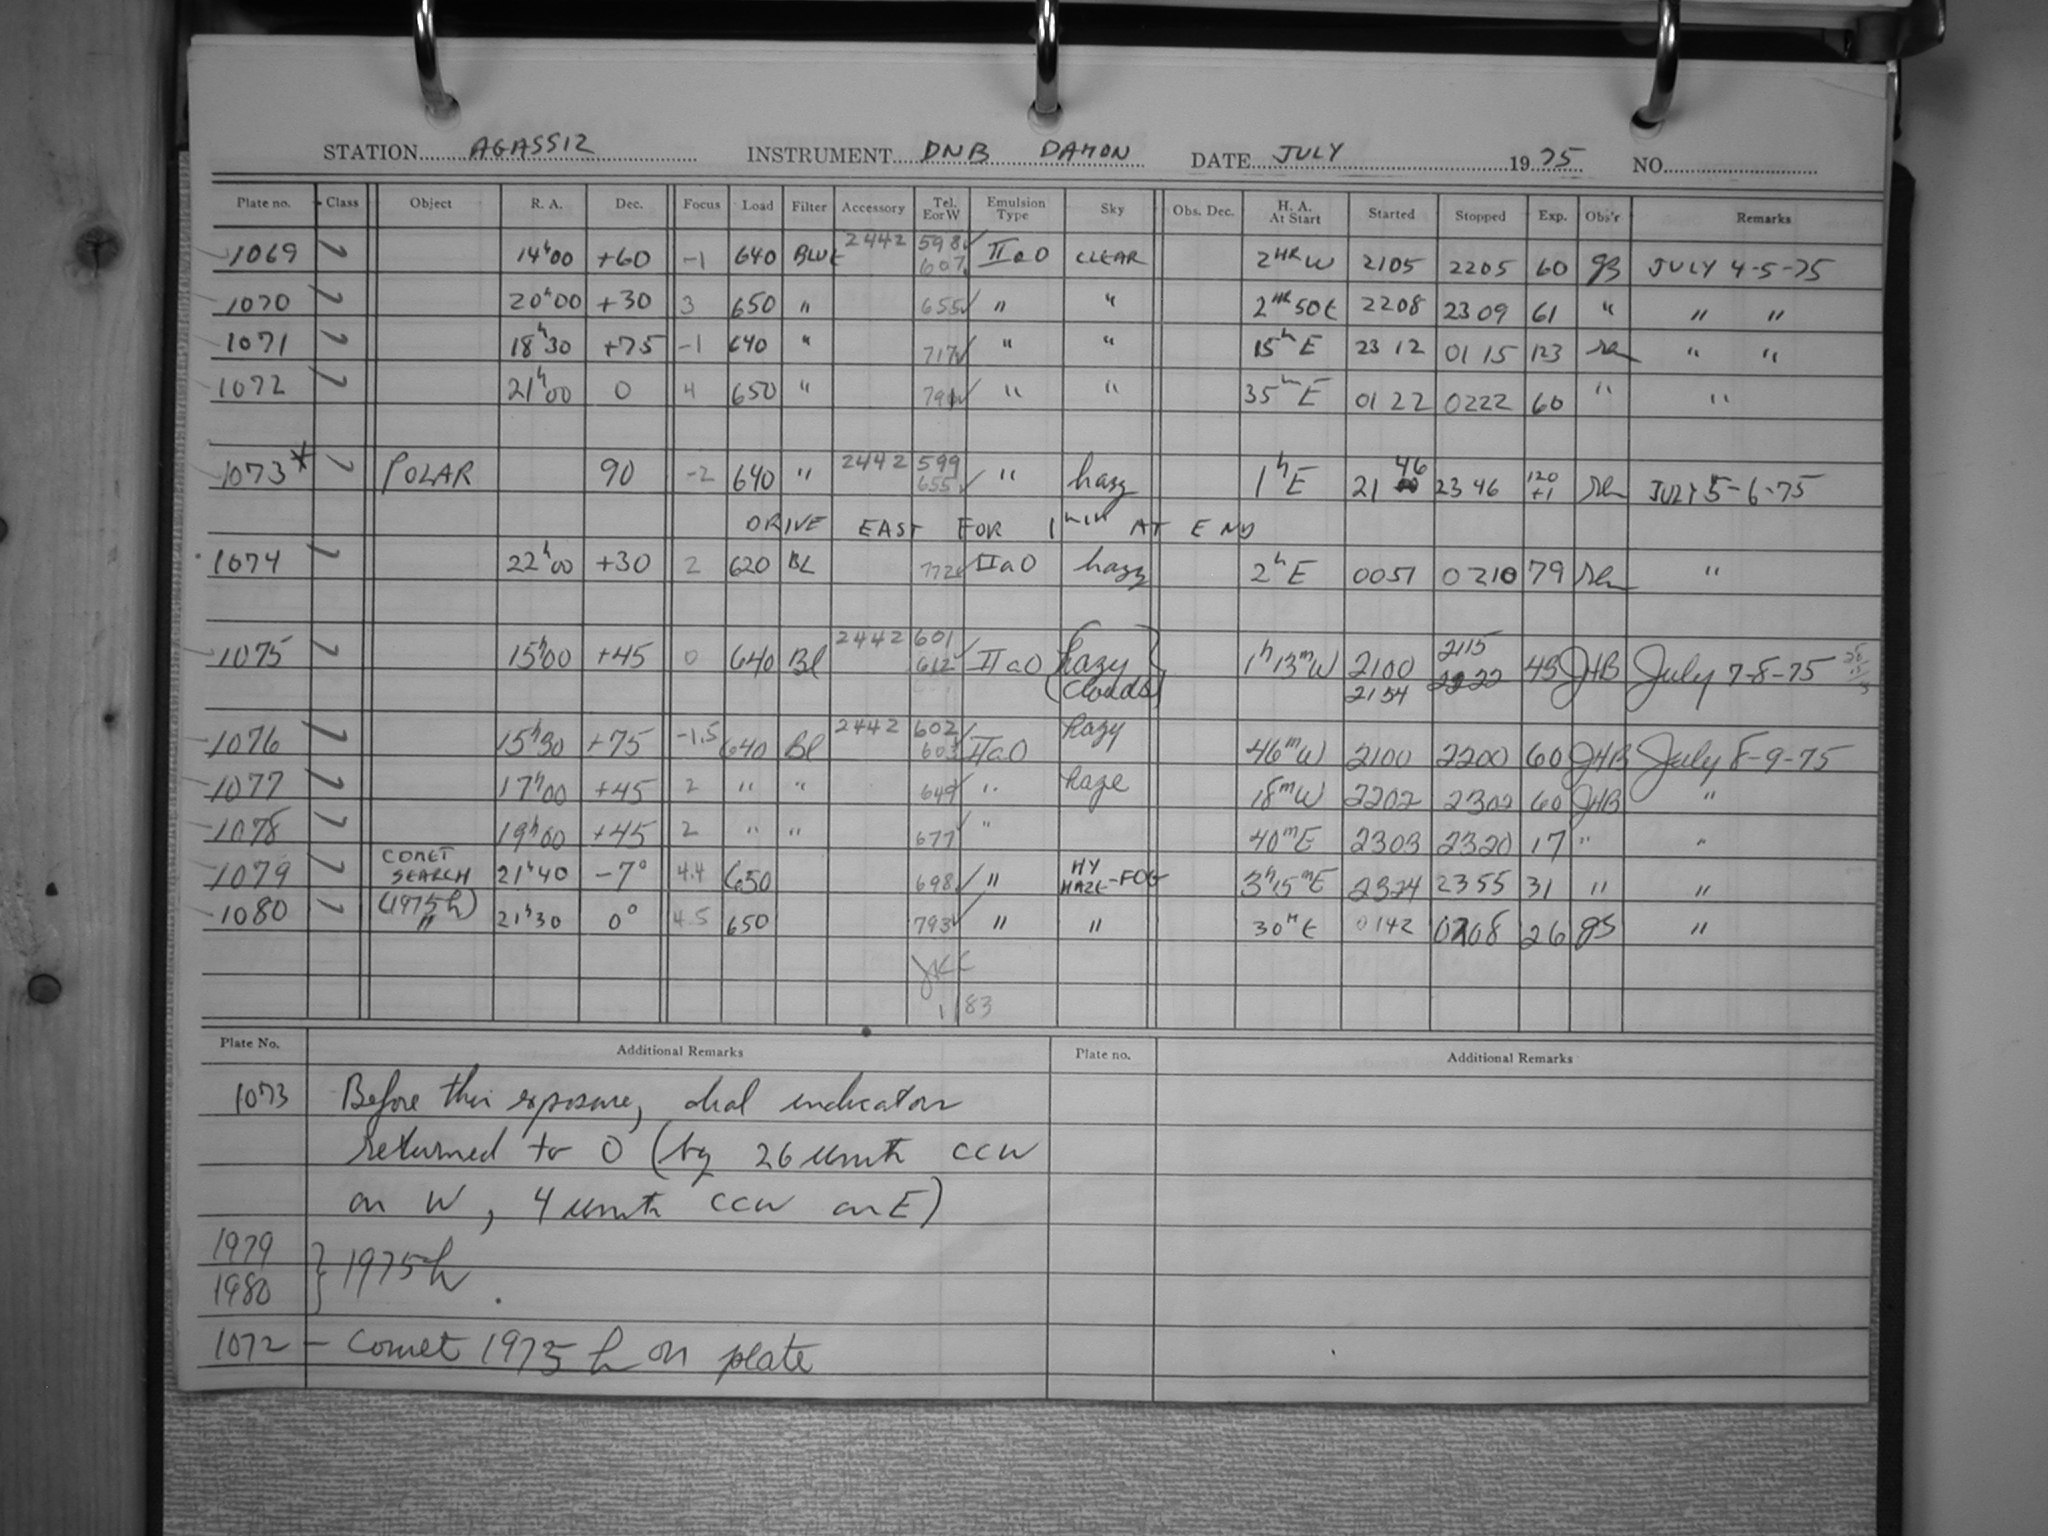 STATION AGASSIZ INSTRUMENT DNB DAMON DATE JULY 1975 NO.
Plate no. Class Object R. A. Dec. Focus Load Filter Accessory Tel. EorW Emulsion Type Sky Obs. Dec. H. A. At Start Started Stopped Exp. Obs'r Remarks
1069 14h00 +60 -1 640 BLUE 2442 598 607 IIaO CLEAR 2HR W 2105 2205 60 gs JULY 4-5-75
1070 20h00 +30 3 650 " 655 " " 2HR 50 E 2208 2309 61 " " "
1071 18h30 +75 -1 640 " 717 " " 15m E 2312 0115 123 " "
1072 21h00 0 4 650 " " " 35m E 0122 0222 60 " "
1073* POLAR 90 -2 640 " 2442 599 655 " hazy 1h E 2146 2346 120 +1 JULY 5-6-75
DRIVE EAST FOR 1 min AT END
1074 22h00 +30 2 620 BL 772 IIaO hazy 2h E 0051 0210 79 "
1075 15h00 +45 0 640 Bl 2442 601 612 IIaO hazy (Clouds) 1h13m W 2100 2115 43 JHB July 7-8-75
2154 2222
1076 15h30 +75 -1.5 640 Bl 2442 602 603 IIaO hazy 46m W 2100 2200 60 JHB July 8-9-75
1077 17h00 +45 2 " " 649 " haze 18m W 2202 2302 60 JHB "
1078 19h00 +45 2 " " 677 " 40m E 2303 2320 17 " "
1079 COMET SEARCH 21h40 -7° 4.4 650 698 " HY HAZE-FOG 3h15m E 2324 2355 31 " "
(1975h)
1080 " 21h30 0° 4.5 650 793 " " 30M E 0142 0208 26 gs "
1/83
Plate No. Additional Remarks Plate no. Additional Remarks
1073 Before this exposure, dial indicator
returned to 0 (by 26 units ccw
on W, 4 units ccw on E)
1979
1980 } 1975h.
1072 - Comet 1975h on plate